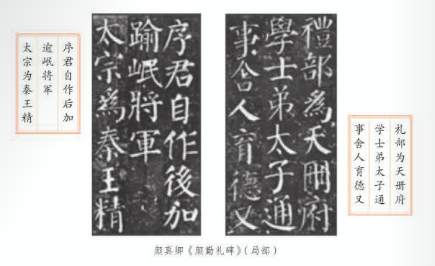 禮部爲天冊府
學士弟太子通
事舍人育德又
礼部为天册府
学士弟太子通
事舍人育德又
序君自作後加
踰岷將軍
太宗爲秦王精
序君自作后加
逾岷将军
太宗为秦王精
颜真卿《颜勤礼碑》(局部)